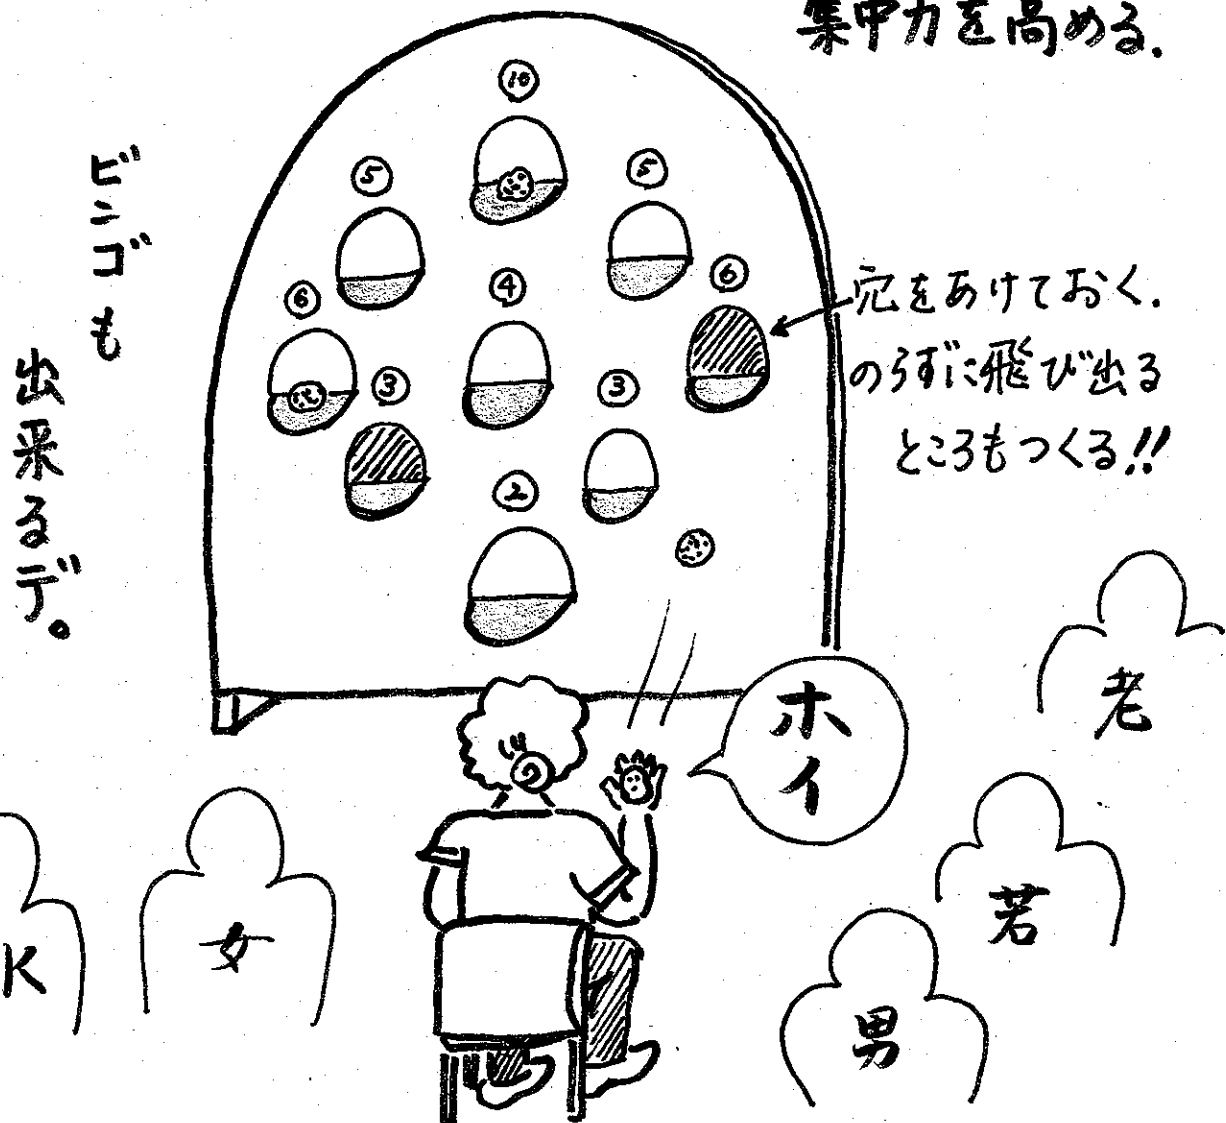 集中力を高める.
ビンゴも
出来るデ。
10
5
5
6
4
6
3
3
2
穴をあけておく.
のらずに飛び出る
ところもつくる!!
ホイ
老
若
男
女
K